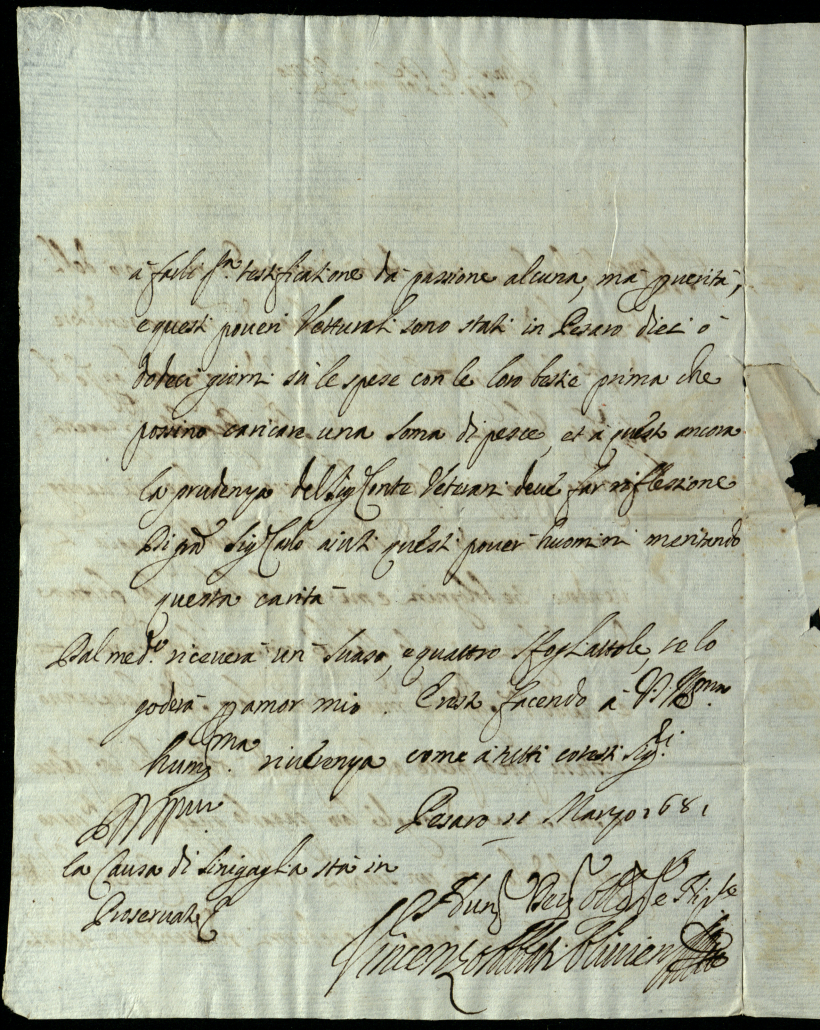 à farli testificatione da passione alcuna, mà p verità,
e questi poveri Vetturali sono stati in Pesaro dieci ò
dodeci giorni sù le spese con le loro bestie prima che
possino caricare una soma di pesce, et à questi ancora
la prudenza del Sig Conte Veterani deve far riflessione
Sig Carlo aiuti questi poveri huomini meritando
questa carità
Dal med.o riceverà un Suaso, e quattro sfogliattole, se lo
goderà p amor mio. E resto facendo à V.S. Ill.ma
hum.ma riverenza come à tutti cotesti Sig.ri
Pesaro 21 Marzo 1681
la Causa di Sinigaglia stà in
Vincenzo Abbati Olivieri